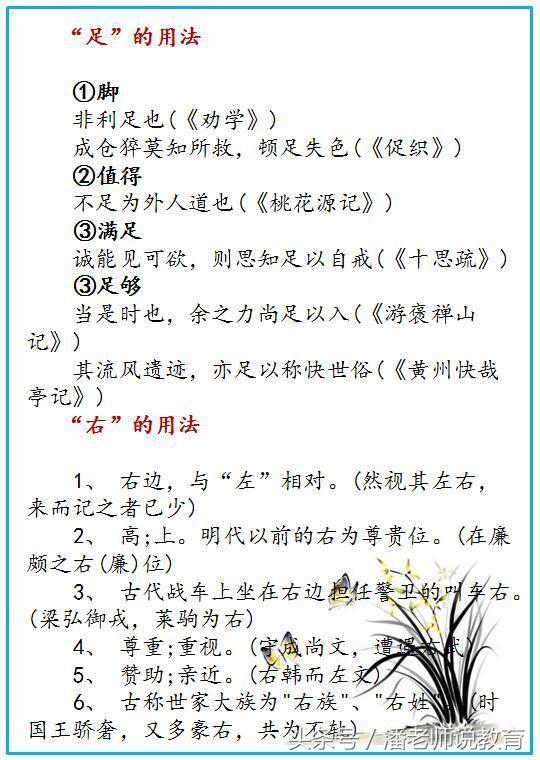 “足”的用法
①脚
非利足也(《劝学》)
成仓猝莫知所救，顿足失色(《促织》)
②值得
不足为外人道也(《桃花源记》)
③满足
诚能见可欲，则思知足以自戒(《十思疏》)
③足够
当是时也，余之力尚足以入(《游褒禅山
记》)
其流风遗迹，亦足以称快世俗(《黄州快哉
亭记》)
“右”的用法
1、 右边，与“左”相对。(然视其左右，
来而记之者已少)
2、 高;上。明代以前的右为尊贵位。(在廉
颇之右(廉)位)
3、 古代战车上坐在右边担任警卫的叫车右。
(梁弘御戎，莱驹为右)
4、 尊重;重视。(守成尚文，遭遇右武)
5、 赞助;亲近。(右韩而左文)
6、 古称世家大族为"右族"、"右姓"。(时
国王骄奢，又多豪右，共为不轨)
头条号/潘老师说教育